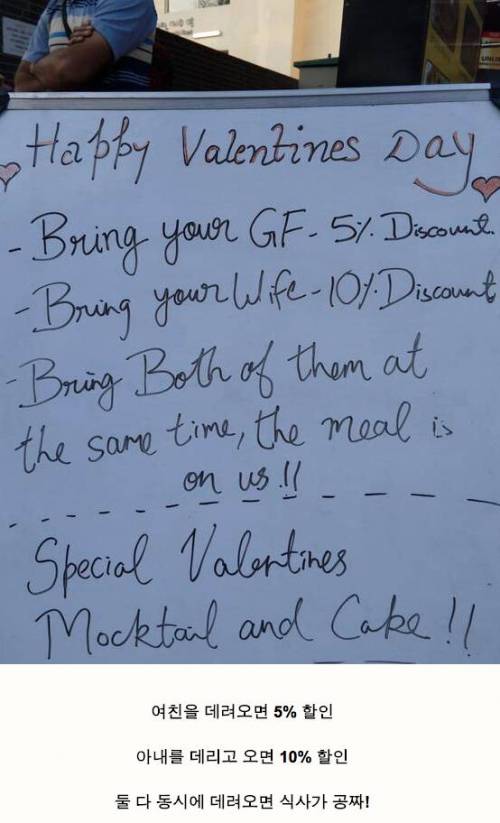 Happy Valentines Day
- Bring your GF - 5% Discount.
- Bring your Wife - 10% Discount
- Bring Both of them at
the same time, the meal is
on us !!
Special Valentines
Mocktail and Cake !!
여친을 데려오면 5% 할인
아내를 데리고 오면 10% 할인
둘 다 동시에 데려오면 식사가 공짜!